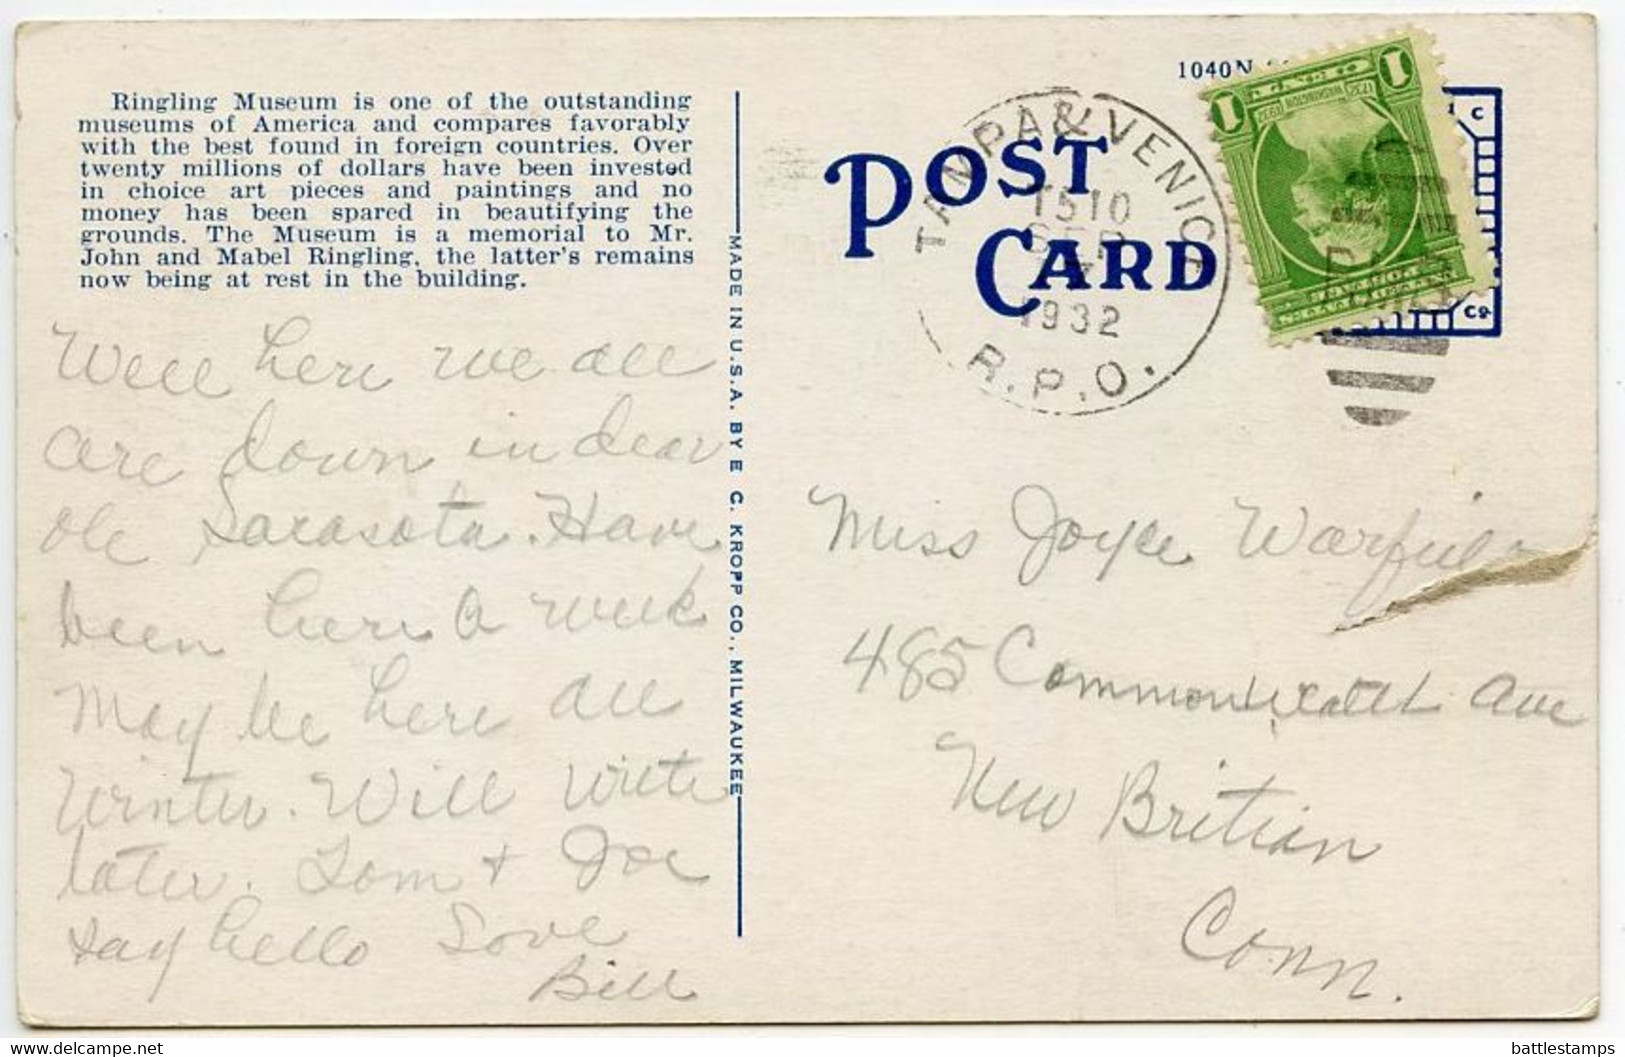 Ringling Museum is one of the outstanding
museums of America and compares favorably
with the best found in foreign countries. Over
twenty millions of dollars have been invested
in choice art pieces and paintings and no
money has been spared in beautifying the
grounds. The Museum is a memorial to Mr.
John and Mabel Ringling, the latter's remains
now being at rest in the building.
Well here we all
are down in dear
ole Sarasota. Have
been here a week
May be here all
Winter. Will write
later. Tom + Joe
say hello Love
Bill
MADE IN U.S.A. BY E. C. KROPP CO., MILWAUKEE
1040N
POST
CARD
TAMPA & VENICE
T510
SEP
7
1932
R.P.O.
1 1
C
Co
Miss Joyce Warfield
485 Commonwealth Ave
New Britian
Conn.
delcampe.net
battlestamps